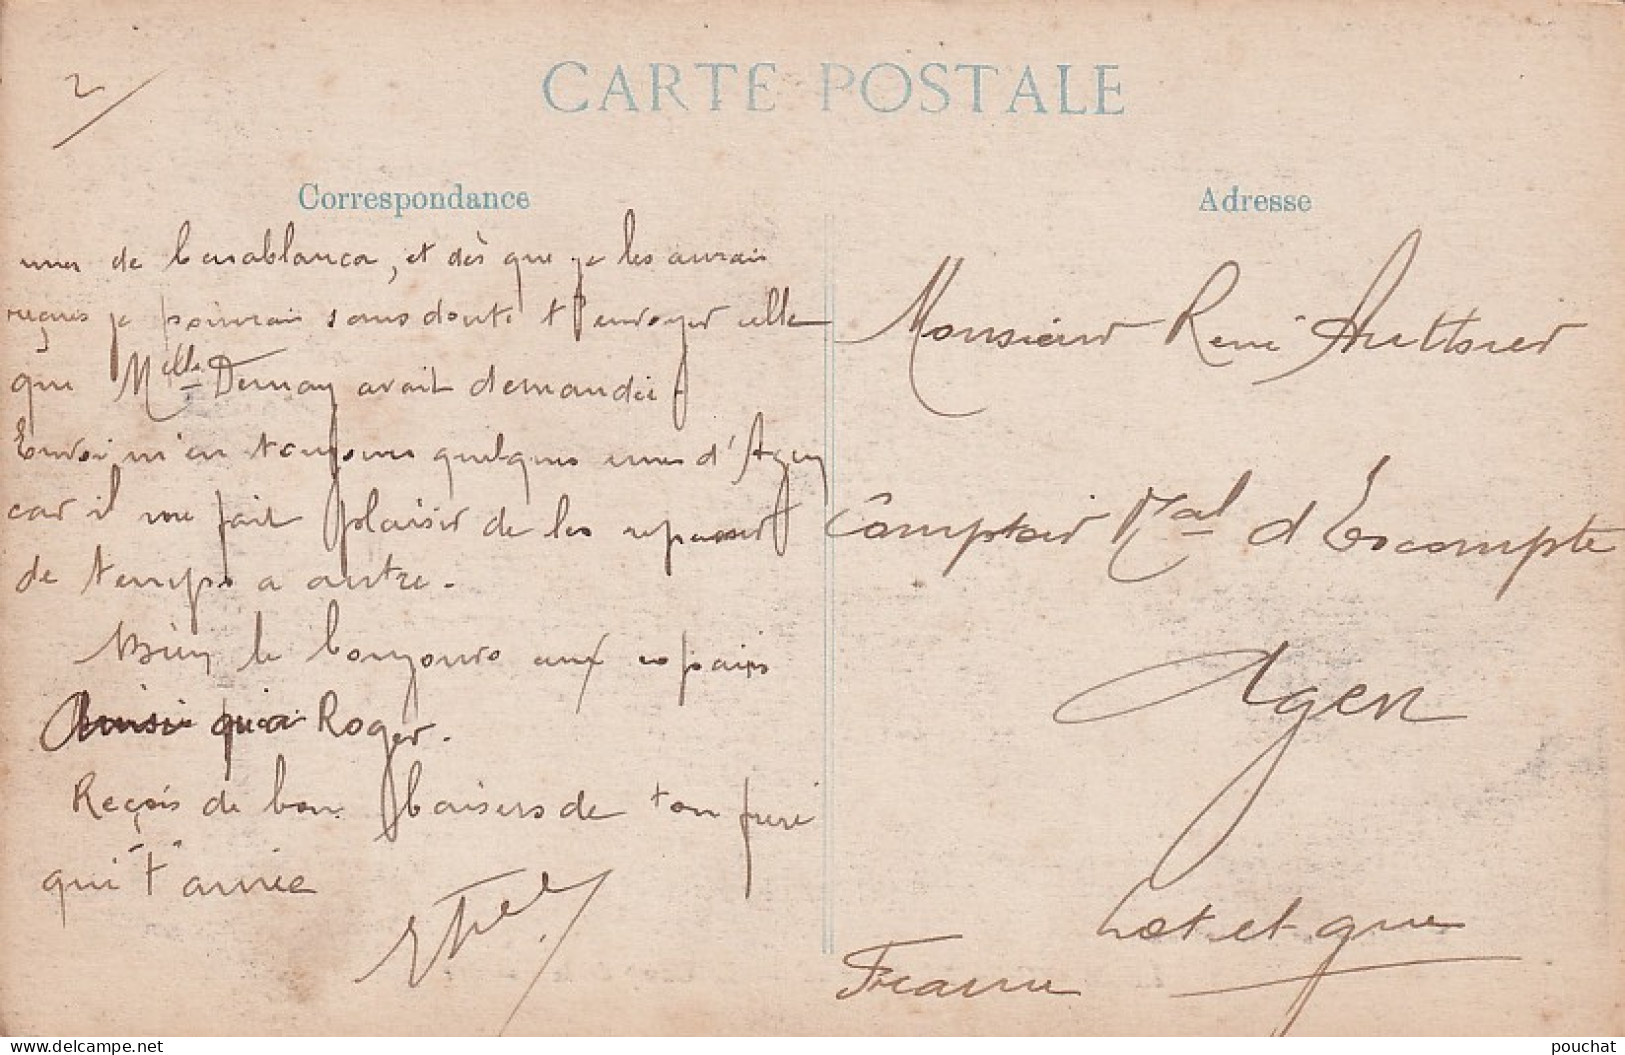 2
CARTE POSTALE
Correspondance
unes de Casablanca, et dès que je les aurais
reçues je pourrais sans doute t'envoyer celle
que Melle Dernay avait demandée.
Envoi m'en toujours quelques unes d'Agen
car il me fait plaisir de les repasser
de temps a autre.
Bien le bonjours aux copains
Ainsi qu'a Roger.
Reçois de bon baisers de ton frère
qui "t" aime
Adresse
Monsieur René
Comptoir Nal d'Escompte
Agen
Lot et gne
France
pouchat